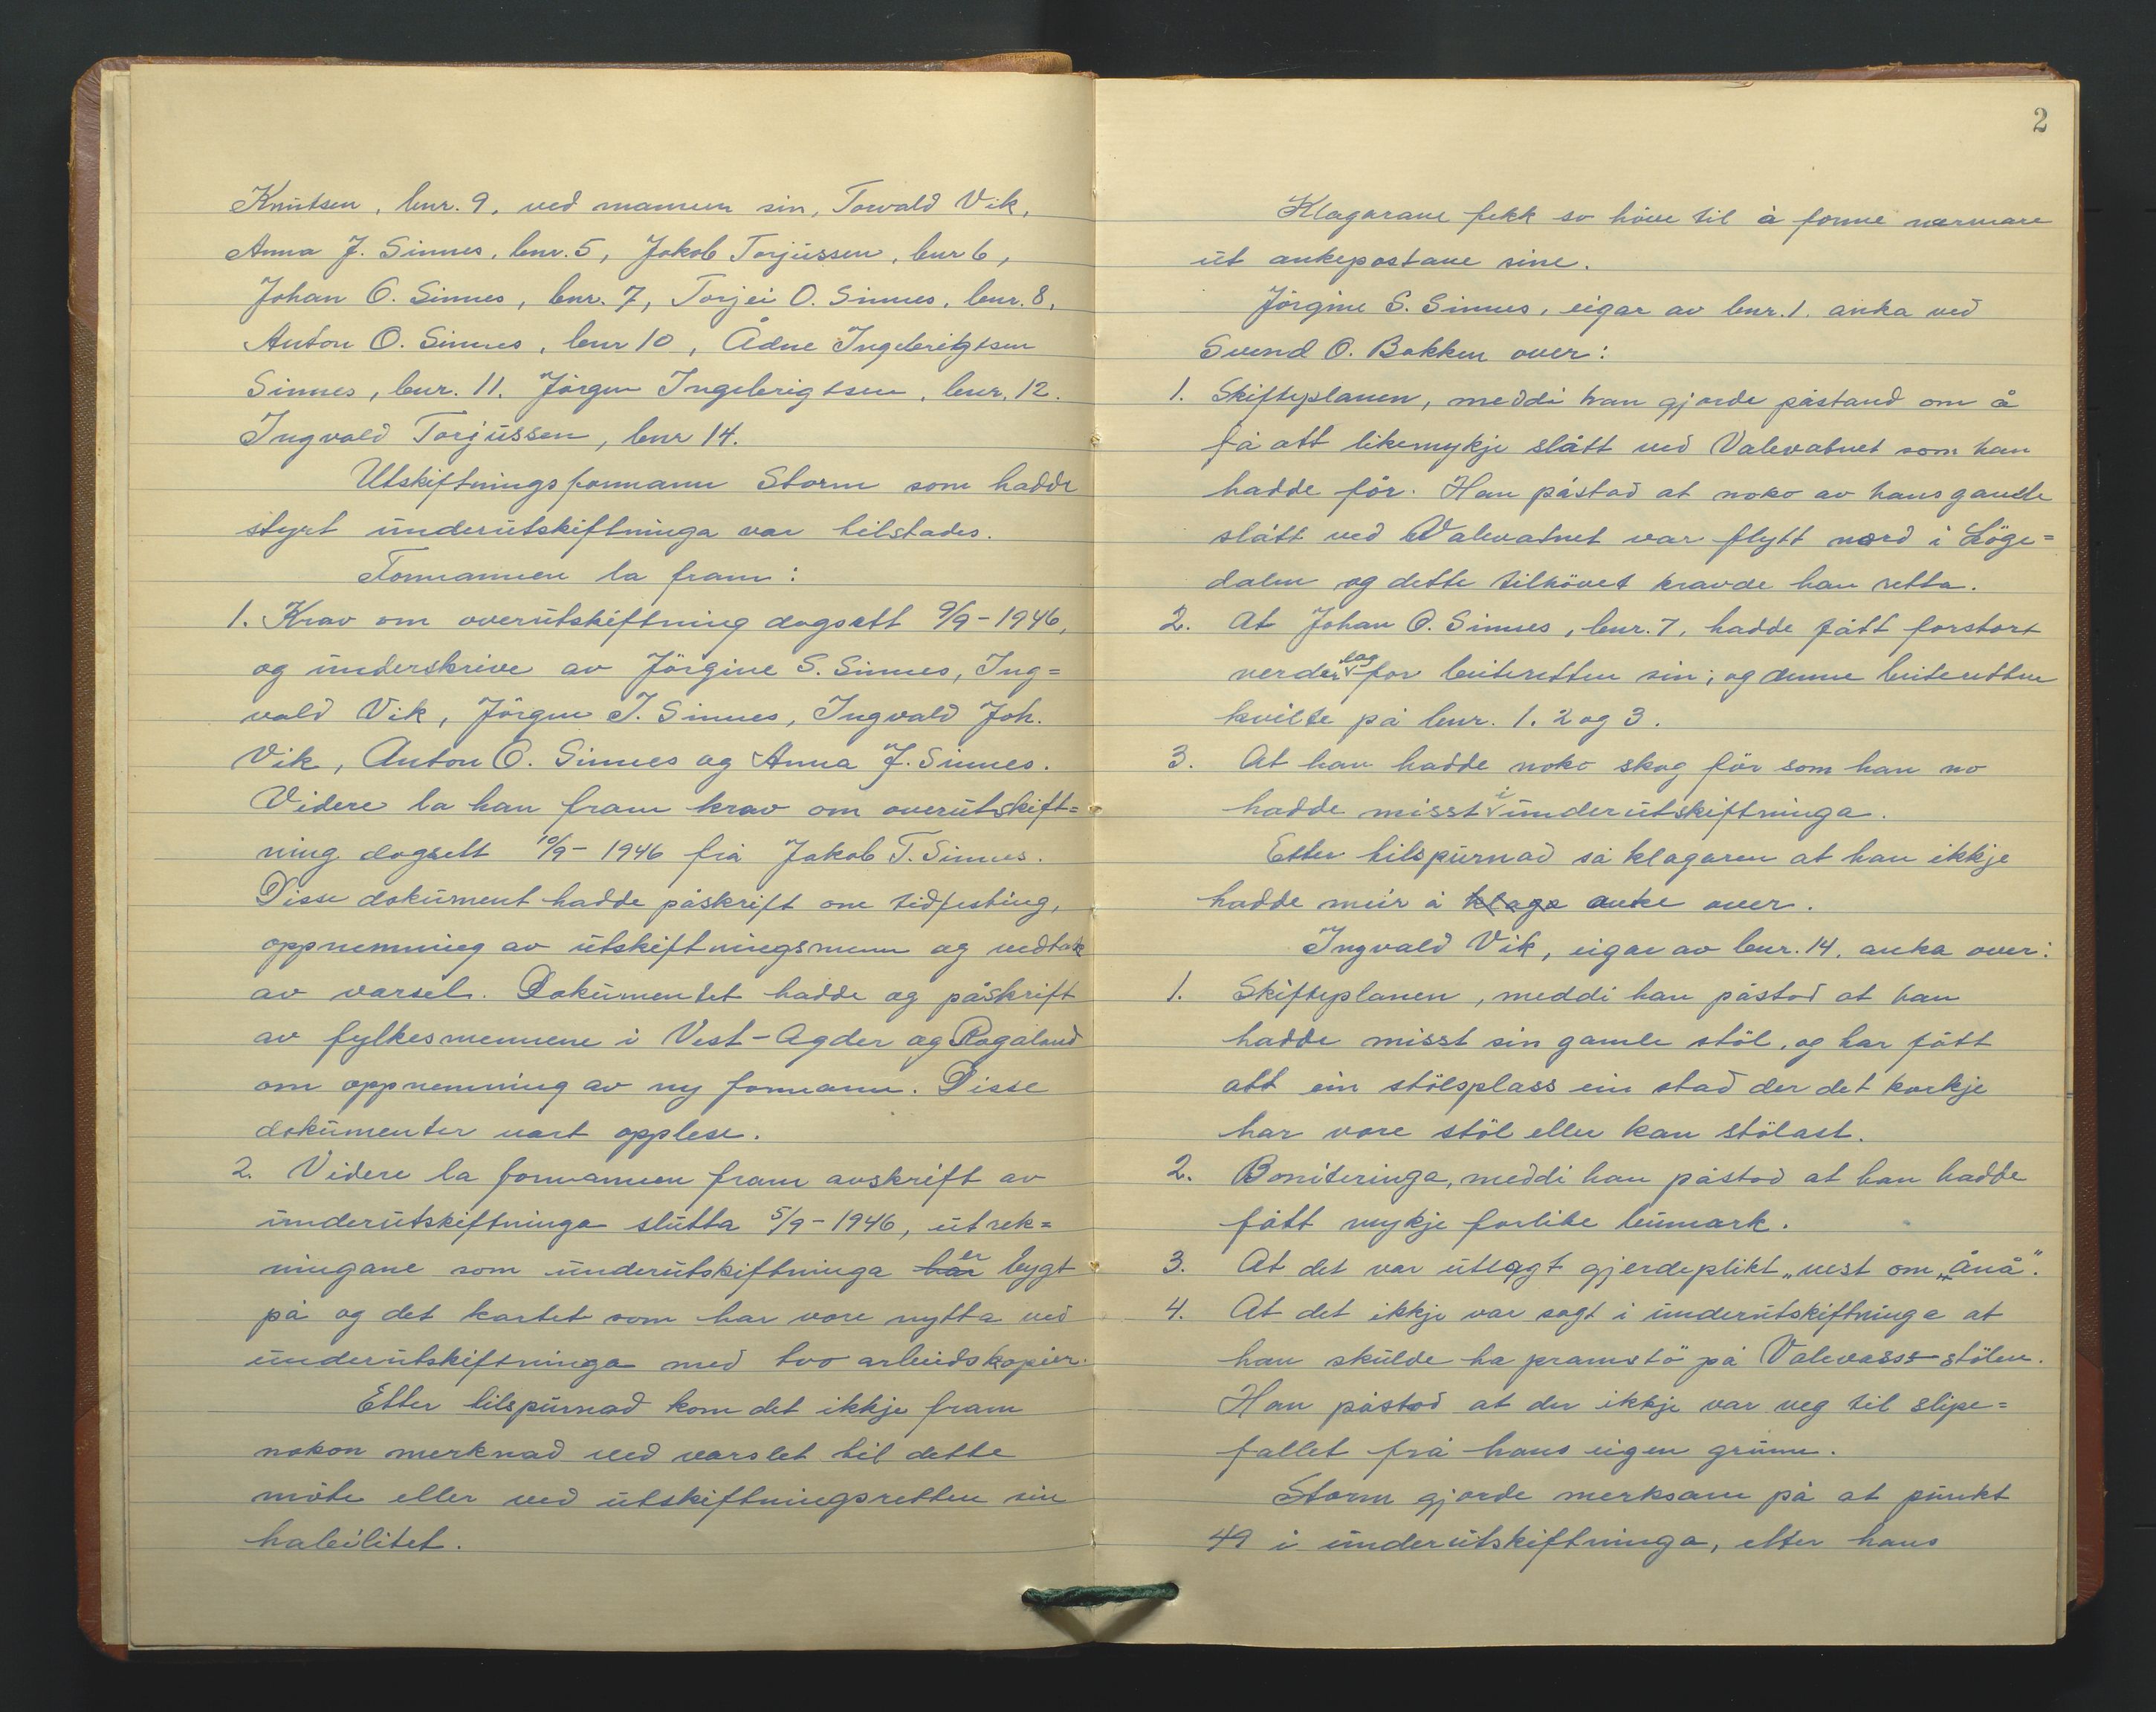 Knutsen, bnr. 9, ved mannen sin, Torvald Vik,
Anna J. Sinnes, bnr. 5, Jakob Torjussen, bnr 6,
Johan O. Sinnes, bnr. 7, Torjei O. Sinnes, bnr. 8,
Anton O. Sinnes, bnr 10, Ådne Ingebrigtsen
Sinnes, bnr. 11. Jörgen Ingebrigtsen, bnr. 12.
Ingvald Torjussen, bnr 14.
Utskiftningsformann Storm som hadde
styrt underutskiftninga var tilstades.
Formannen la fram:
1. Krav om overutskiftning dagsett 9/9-1946,
og underskrive av Jörgine S. Sinnes, Ing=
vald Vik, Jörgen I. Sinnes, Ingvald Joh.
Vik, Anton O. Sinnes og Anna J. Sinnes.
Videre la han fram krav om overutskift=
ning dagsett 10/9-1946 frå Jakob T. Sinnes.
Disse dokument hadde påskrift om tidfesting,
oppnemning av utskiftningsmenn og vedtak
av varsel. Dokumentet hadde og påskrift
av fylkesmennene i Vest-Agder og Rogaland
om oppnemning av ny formann. Disse
dokumenter vart opplese.
2. Videre la formannen fram avskrift av
underutskiftninga slutta 5/9-1946, utrek=
ningane som underutskiftninga har er bygt
på og det kartet som har vore nytta ved
underutskiftninga med tvo arbeidskopier.
Etter tilspurnad kom det ikkje fram
nokon merknad ved varslet til dette
möte eller ved utskiftningsretten sin
habilitet.
2
Klagarane fekk so höve til å forme nærmare
ut ankepostane sine.
Jörgine S. Sinnes, eigar av bnr. 1. anka ved
Svend O. Bakken over:
1. Skifteplanen, meddi han gjorde påstand om å
få att likemykje slått ved Valevatnet som han
hadde för. Han påstod at noko av hans gamle
slått ved Valevatnet var flytt nord i Löge=
dalen og dette tilhövet kravde han retta.
2. At Johan O. Sinnes, bnr. 7, hadde fått forstort
verdilag for beiteretten sin; og denne beiteretten
kvilte på bnr. 1. 2 og 3.
3. At han hadde noko skog för som han no
hadde misst i underutskiftninga.
Etter tilspurnad sa klagaren at han ikkje
hadde meir å klage anke over.
Ingvald Vik, eigar av bnr. 14. anka over:
1. Skifteplanen, meddi han påstod at han
hadde misst sin gamle stöl, og har fått
att ein stölsplass ein stad der det korkje
har vore stöl eller kan stölast.
2. Boniteringa, meddi han påstod at han hadde
fått mykje forlite heimark.
3. At det var utlagt gjerdeplikt „vest om „åna".
4. At det ikkje var sagt i underutskiftninga at
han skulde ha pramstö på Valevass-stölen.
Han påstod at der ikkje var veg til slipe=
fallet frå hans eigen grunn.
Storm gjorde merksam på at punkt
49 i underutskiftninga, etter hans